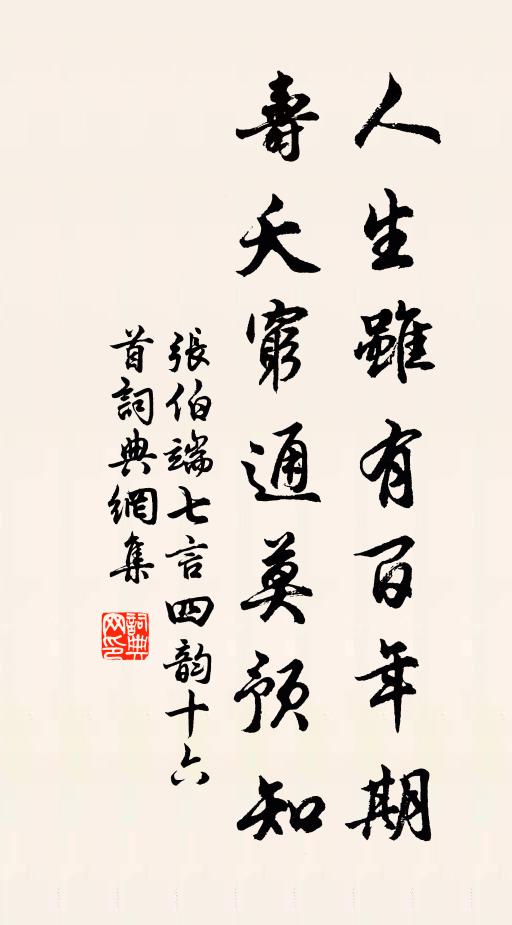 人生雖有百年期
壽夭窮通莫預知
張伯端七言四韵十六
首詞典網集
詞典网印